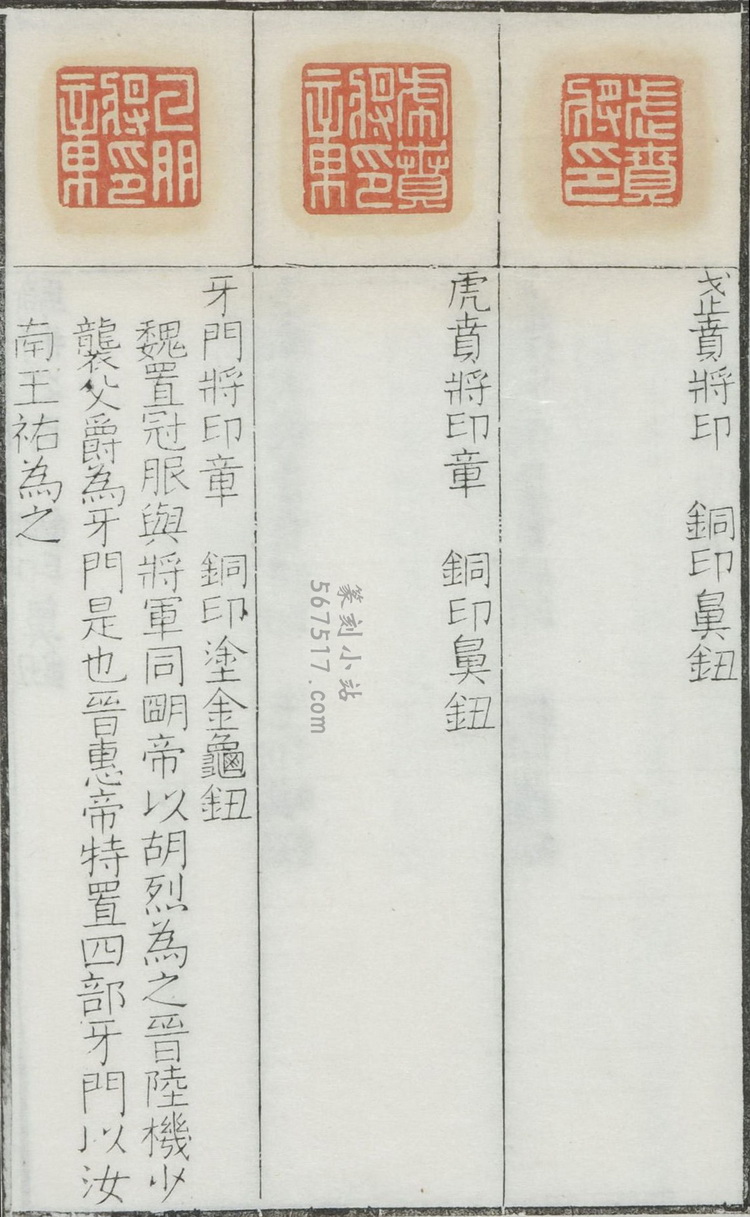 武賁將印
武賁將印　銅印鼻鈕
虎賁將印章
虎賁將印章　銅印鼻鈕
篆刻小站
567517.com
牙門將印章
牙門將印章　銅印塗金龜鈕
魏置冠服與將軍同朙帝以胡烈為之晉陸機少
襲父爵為牙門是也晉惠帝特置四部牙門以汝
南王祐為之